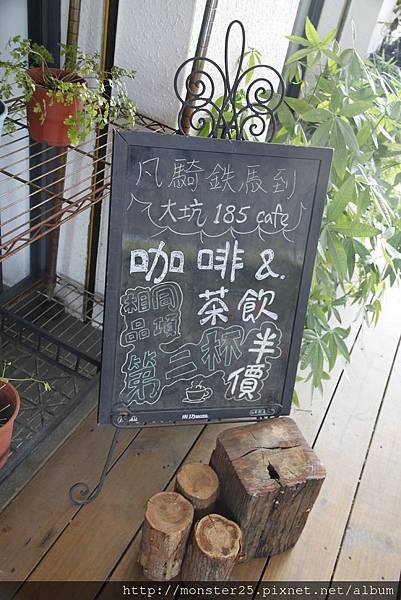 凡騎鐵馬到
大坑 185 cafe
咖啡 &.
茶飲
相同
品項
第二杯
半價
http://monster25.pixnet.net/album